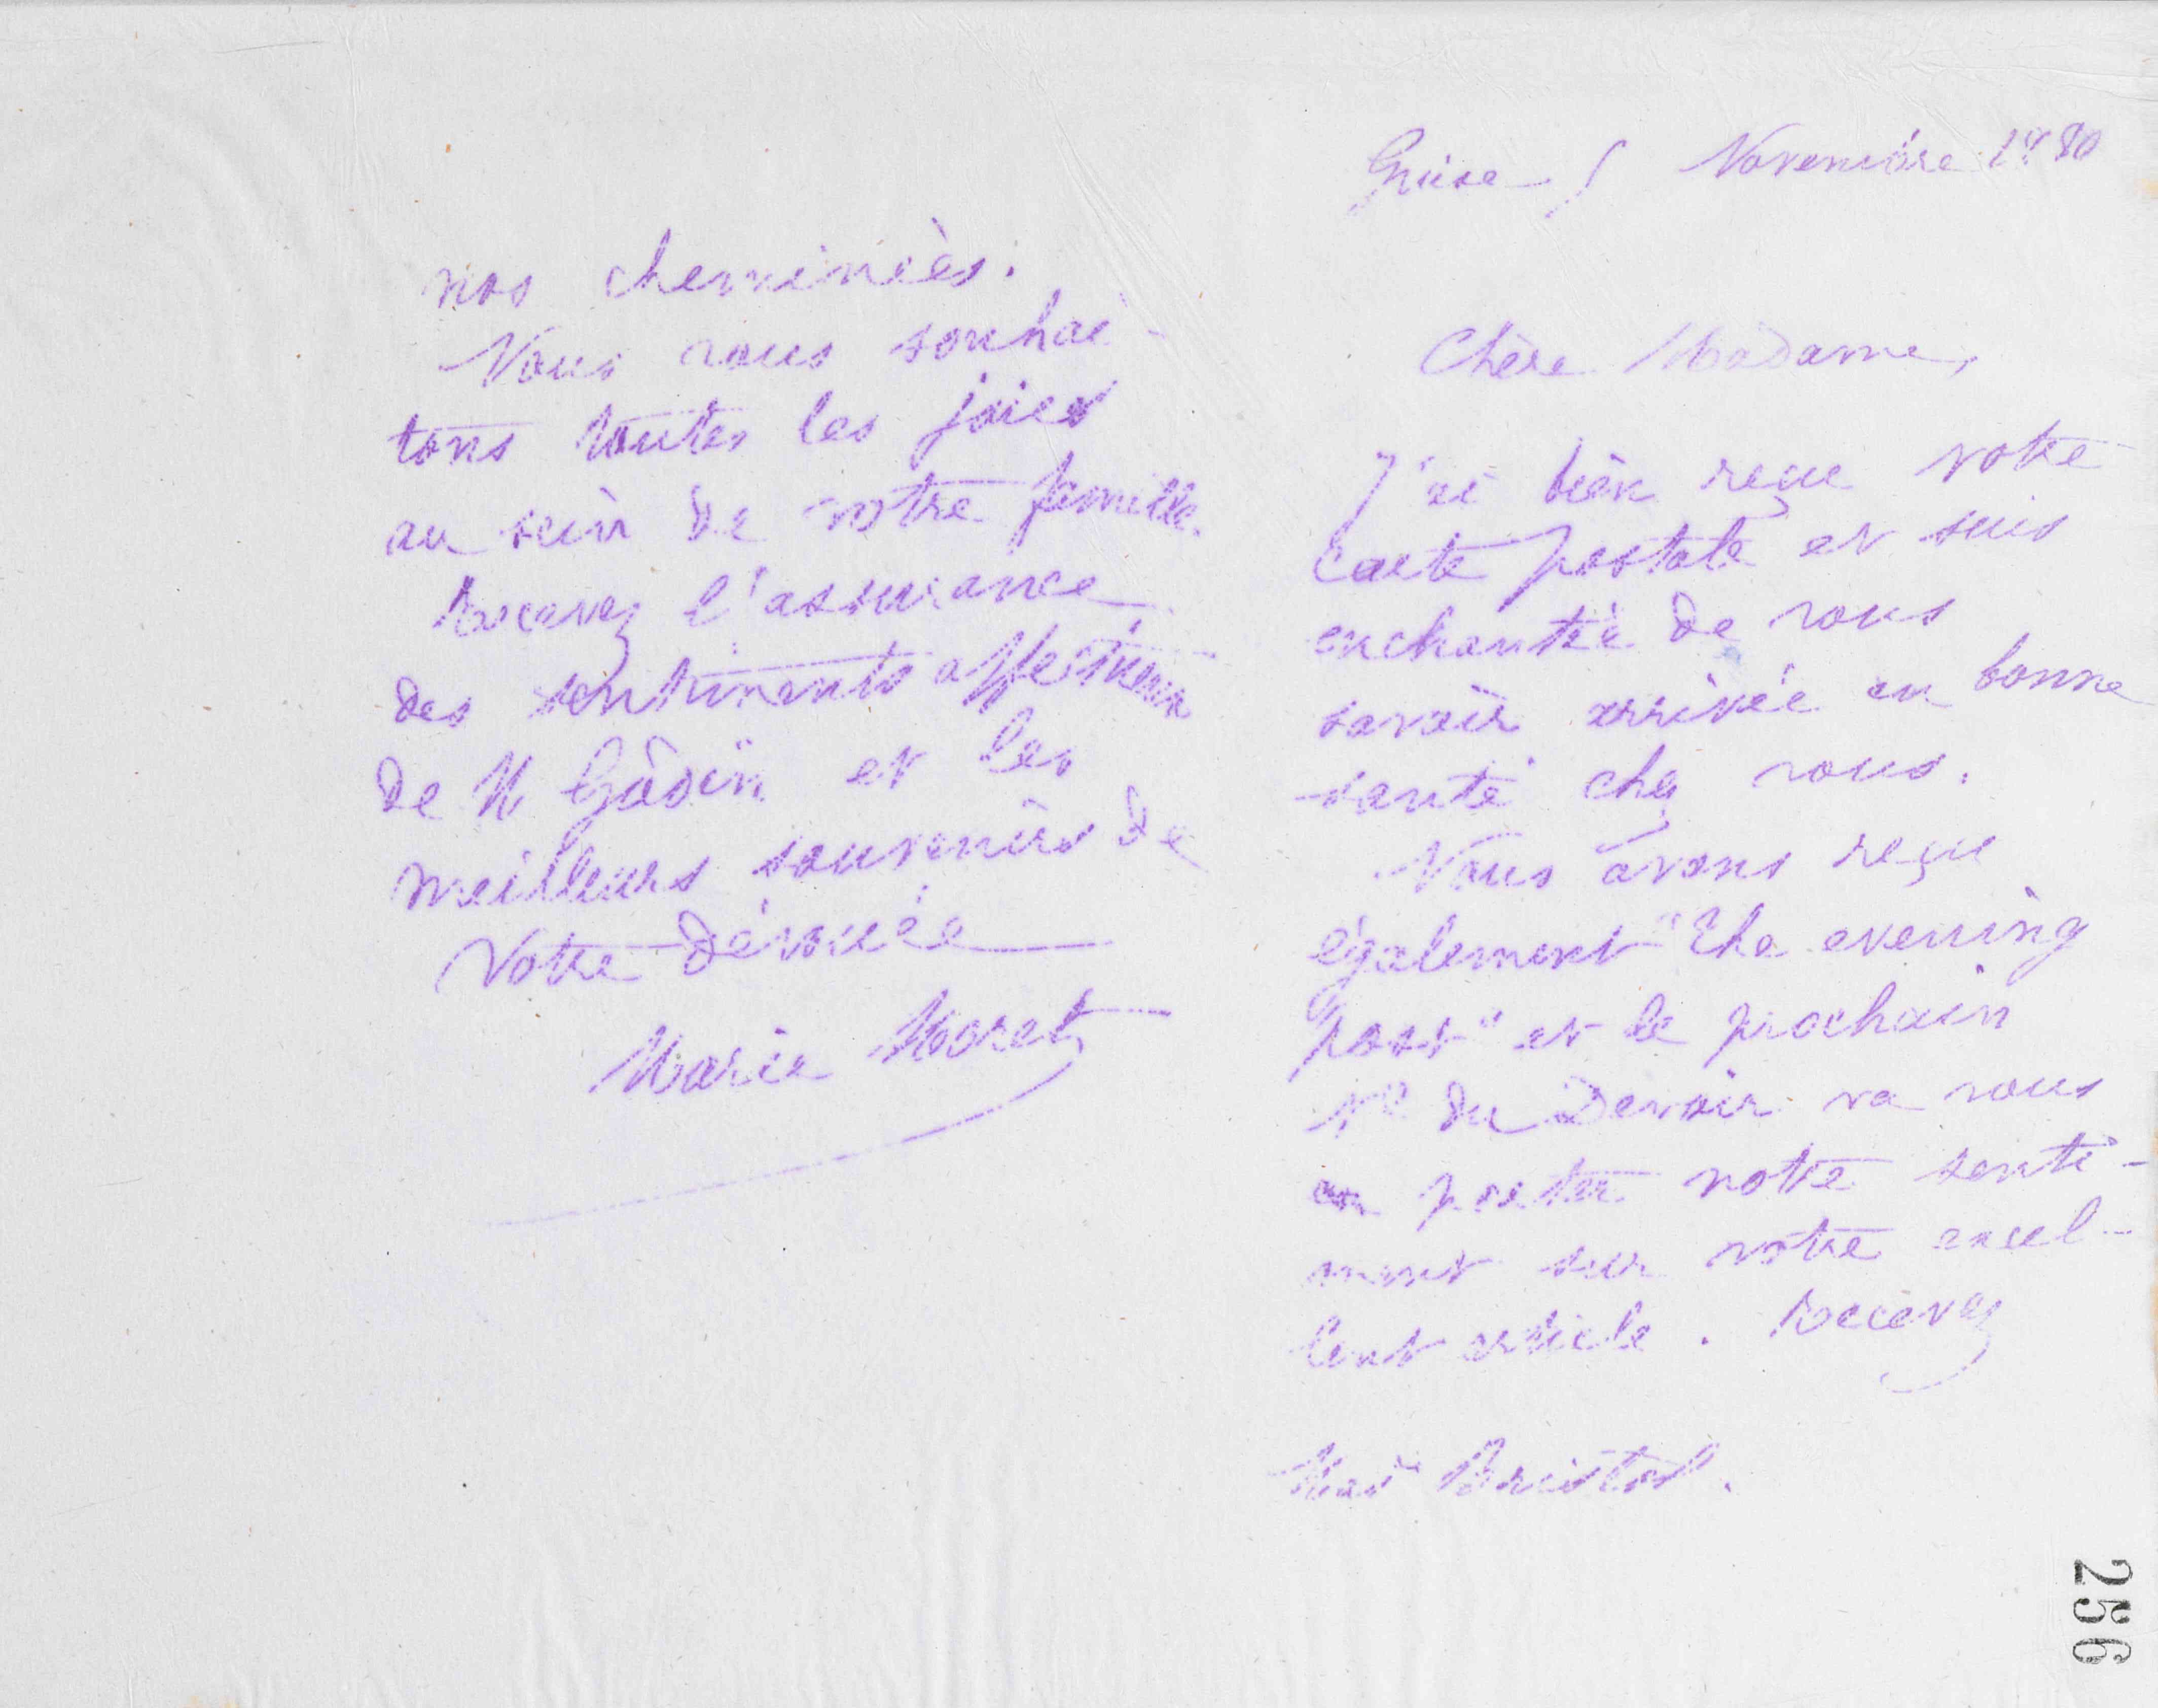 Guise 5 Novembre 1880
Chère Madame,
J'ai bien reçu votre
carte postale et suis
enchantée de vous
savoir arrivée en bonne
santé chez vous.
Nous avons reçu
également "The evening
post" et le prochain
No du Devoir va vous
en porter notre senti-
ment sur votre excel-
lent article. Recevez
Mad Bristol.
nos cheminées.
Nous vous souhai-
tons toutes les joies
au sein de votre famille.
Recevez l'assurance
des sentiments affectueux
de M Godin et les
meilleurs souvenirs de
Votre dévouée
Marie Moret
256